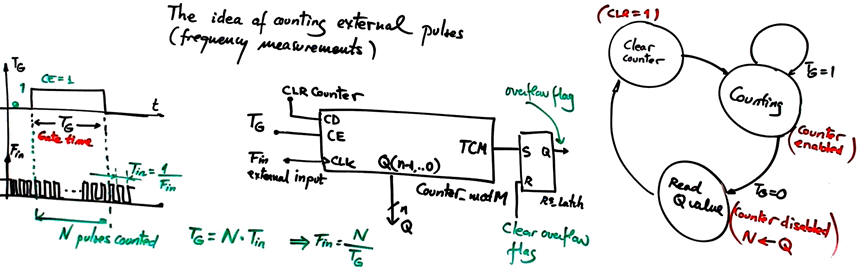 The idea of counting external pulses
(frequency measurements)
TG
1
0
CE=1
t
TG
Gate time
Fin
Tin = 1/Fin
N pulses counted
TG = N · Tin ⇒ Fin = N/TG
CLR Counter
TG
Fin
external input
CD
CE
CLK
Q(n-1,..0)
TCM
Counter_modM
n
Q
overflow flag
S Q
R
RS latch
Clear overflow
flag
(CLR=1)
Clear
counter
TG=1
Counting
(Counter
enabled)
TG=0
Read
Q value
(Counter disabled)
N ← Q